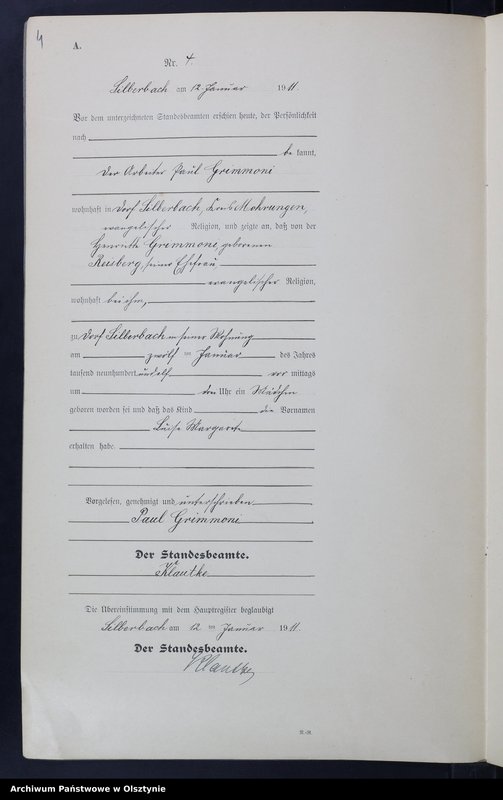 4
A.
Nr. 4.
Silberbach am 12 Januar 1911.
Vor dem unterzeichneten Standesbeamten erschien heute, der Persönlichkeit
nach
be kannt,
der Arbeiter Paul Grimmoni
wohnhaft in Dorf Silberbach, Kreis Mohrungen,
evangelischer Religion, und zeigte an, daß von der
Henriette Grimmoni, geborenen
Reisberg, seiner Ehefrau
evangelischer Religion,
wohnhaft bei ihm,
zu Dorf Silberbach in seiner Wohnung
am zwölf ten Januar des Jahres
tausend neunhundert und elf vor mittags
um Uhr ein Mädchen
geboren worden sei und daß das Kind die Vornamen
Luise Margarete
erhalten habe.
Vorgelesen, genehmigt und unterschrieben
Paul Grimmoni.
Der Standesbeamte.
Klautke
Die Übereinstimmung mit dem Hauptregister beglaubigt
Silberbach am 12 ten Januar 1911.
Der Standesbeamte.
Klautke
Archiwum Państwowe w Olsztynie